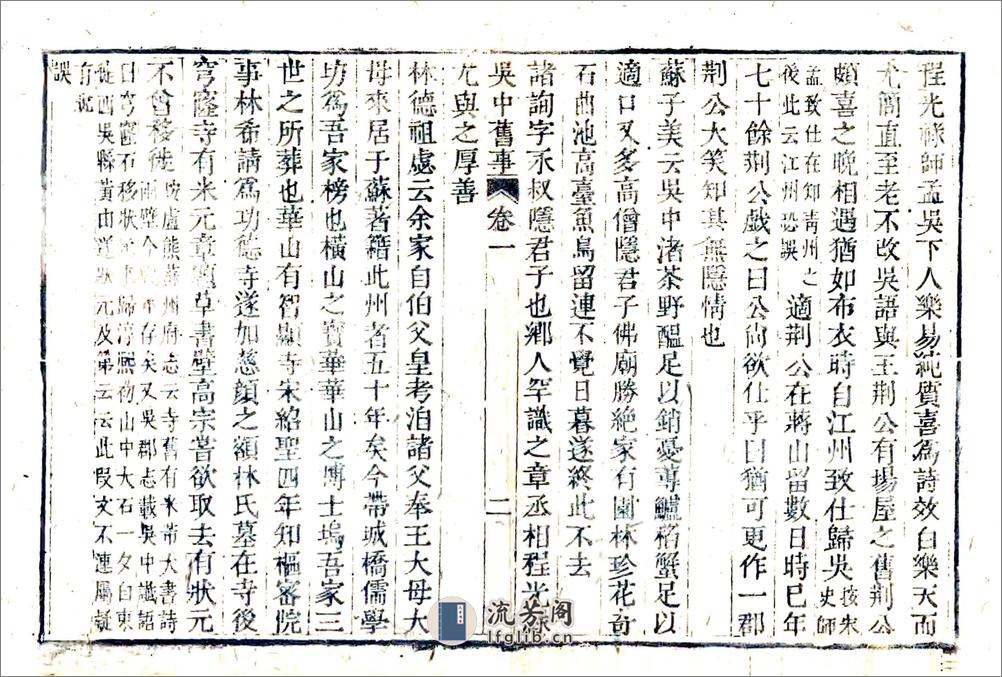 程光祿師孟吳下人樂易純質喜爲詩效白樂天而
尤簡直至老不改吳語與王荆公有場屋之舊荆公
頗喜之晚相遇猶如布衣時自江州致仕歸吳按宋史師
孟致仕在知靑州之後此云江州恐誤適荆公在蔣山留數日時已年
七十餘荆公戲之曰公尙欲仕乎曰猶可更作一郡
荆公大笑知其無隱情也
蘇子美云吳中渚茶野醞足以銷憂蓴鱸稻蟹足以
適口又多高僧隱君子佛廟勝絕家有園林珍花奇
石曲池高臺魚鳥留連不覺日暮遂終此不去
諸詢字永叔隱君子也鄕人罕識之章丞相程光
吳中舊事 卷一 二
尤與之厚善
林德祖虙云余家自伯父皇考洎諸父奉王大母大
母來居于蘇著籍此州者五十年矣今帶城橋儒學
坊爲吾家榜也橫山之寶華華山之博士塢吾家三
世之所葬也華山有智顯寺宋紹聖四年知樞密院
事林希請爲功德寺遂如慈顏之額林氏墓在寺後
穹窿寺有米元章題草書壁高宗嘗欲取去有狀元
不曾移徙按盧熊蘇州府志云寺舊有米芾大書詩
兩壁今存矣又吳郡志載吳中讖語
曰穹窿石移狀元歸淳熙初山中大石一夕自東
徙西吳縣黃由遂狀元及第云云此叚文不連屬疑
有訛
誤
流芳阁
lfglib.cn